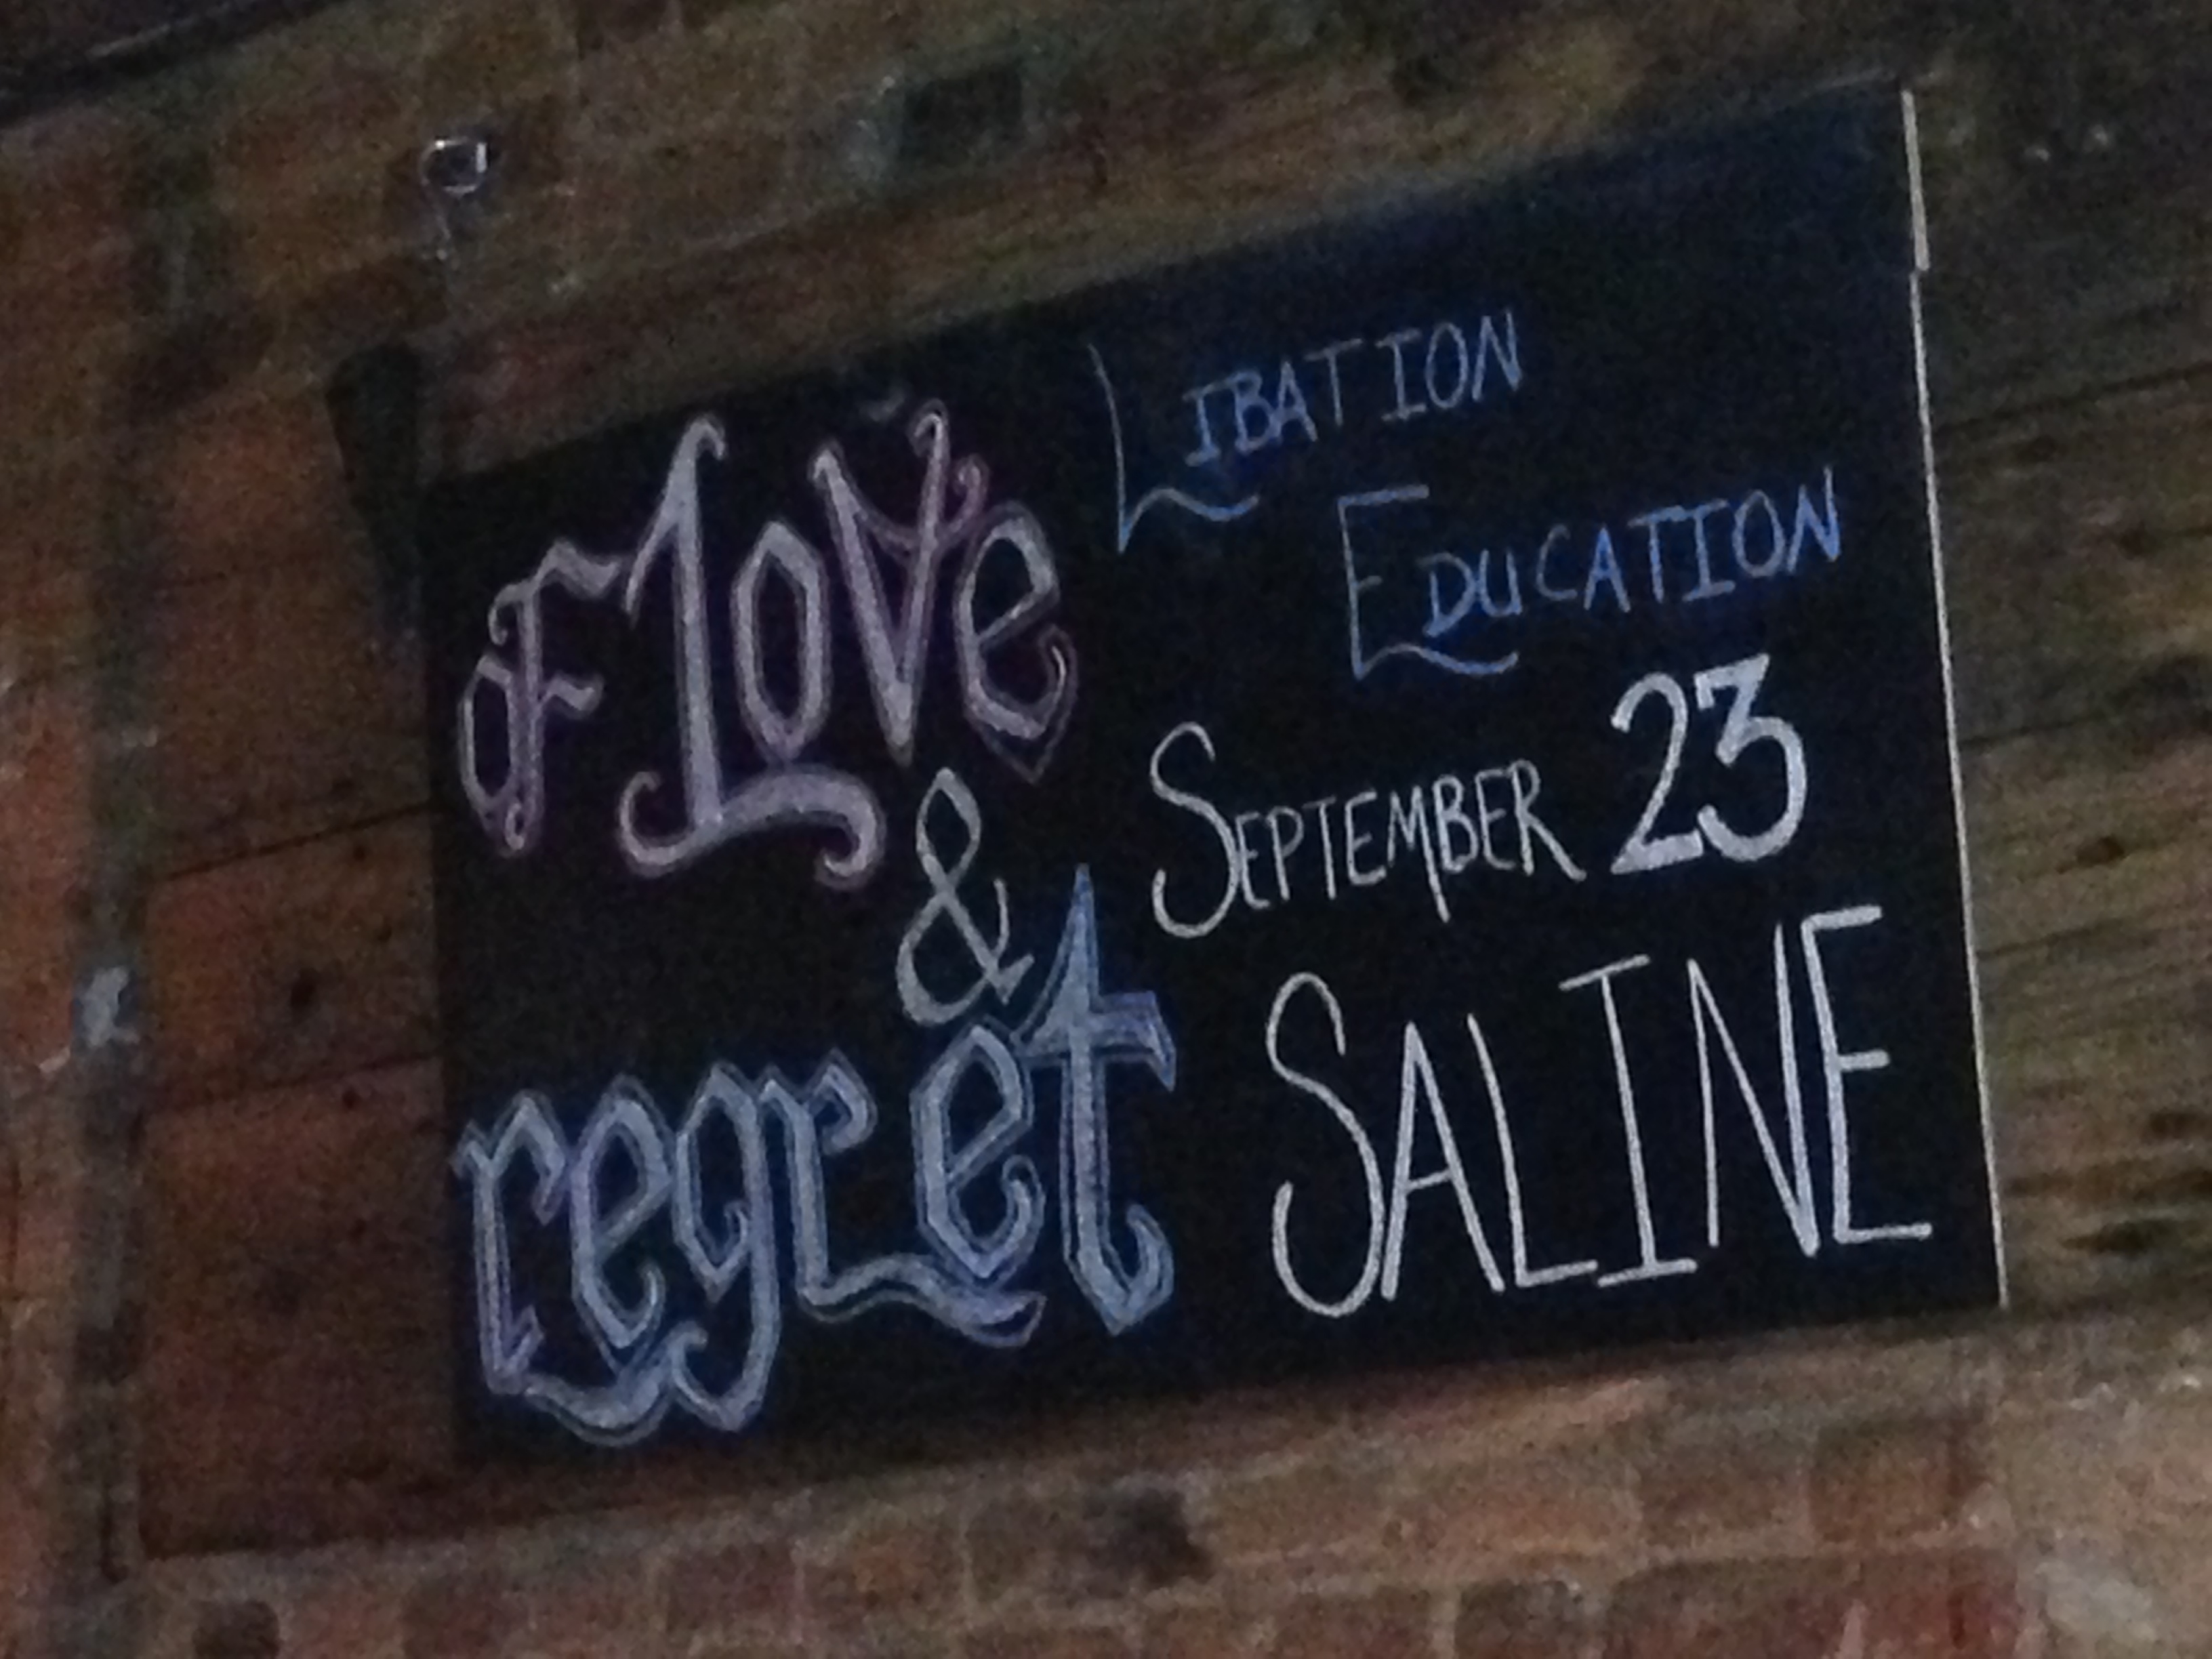 of Love
&
regret
LIBATION
EDUCATION
SEPTEMBER 23
SALINE